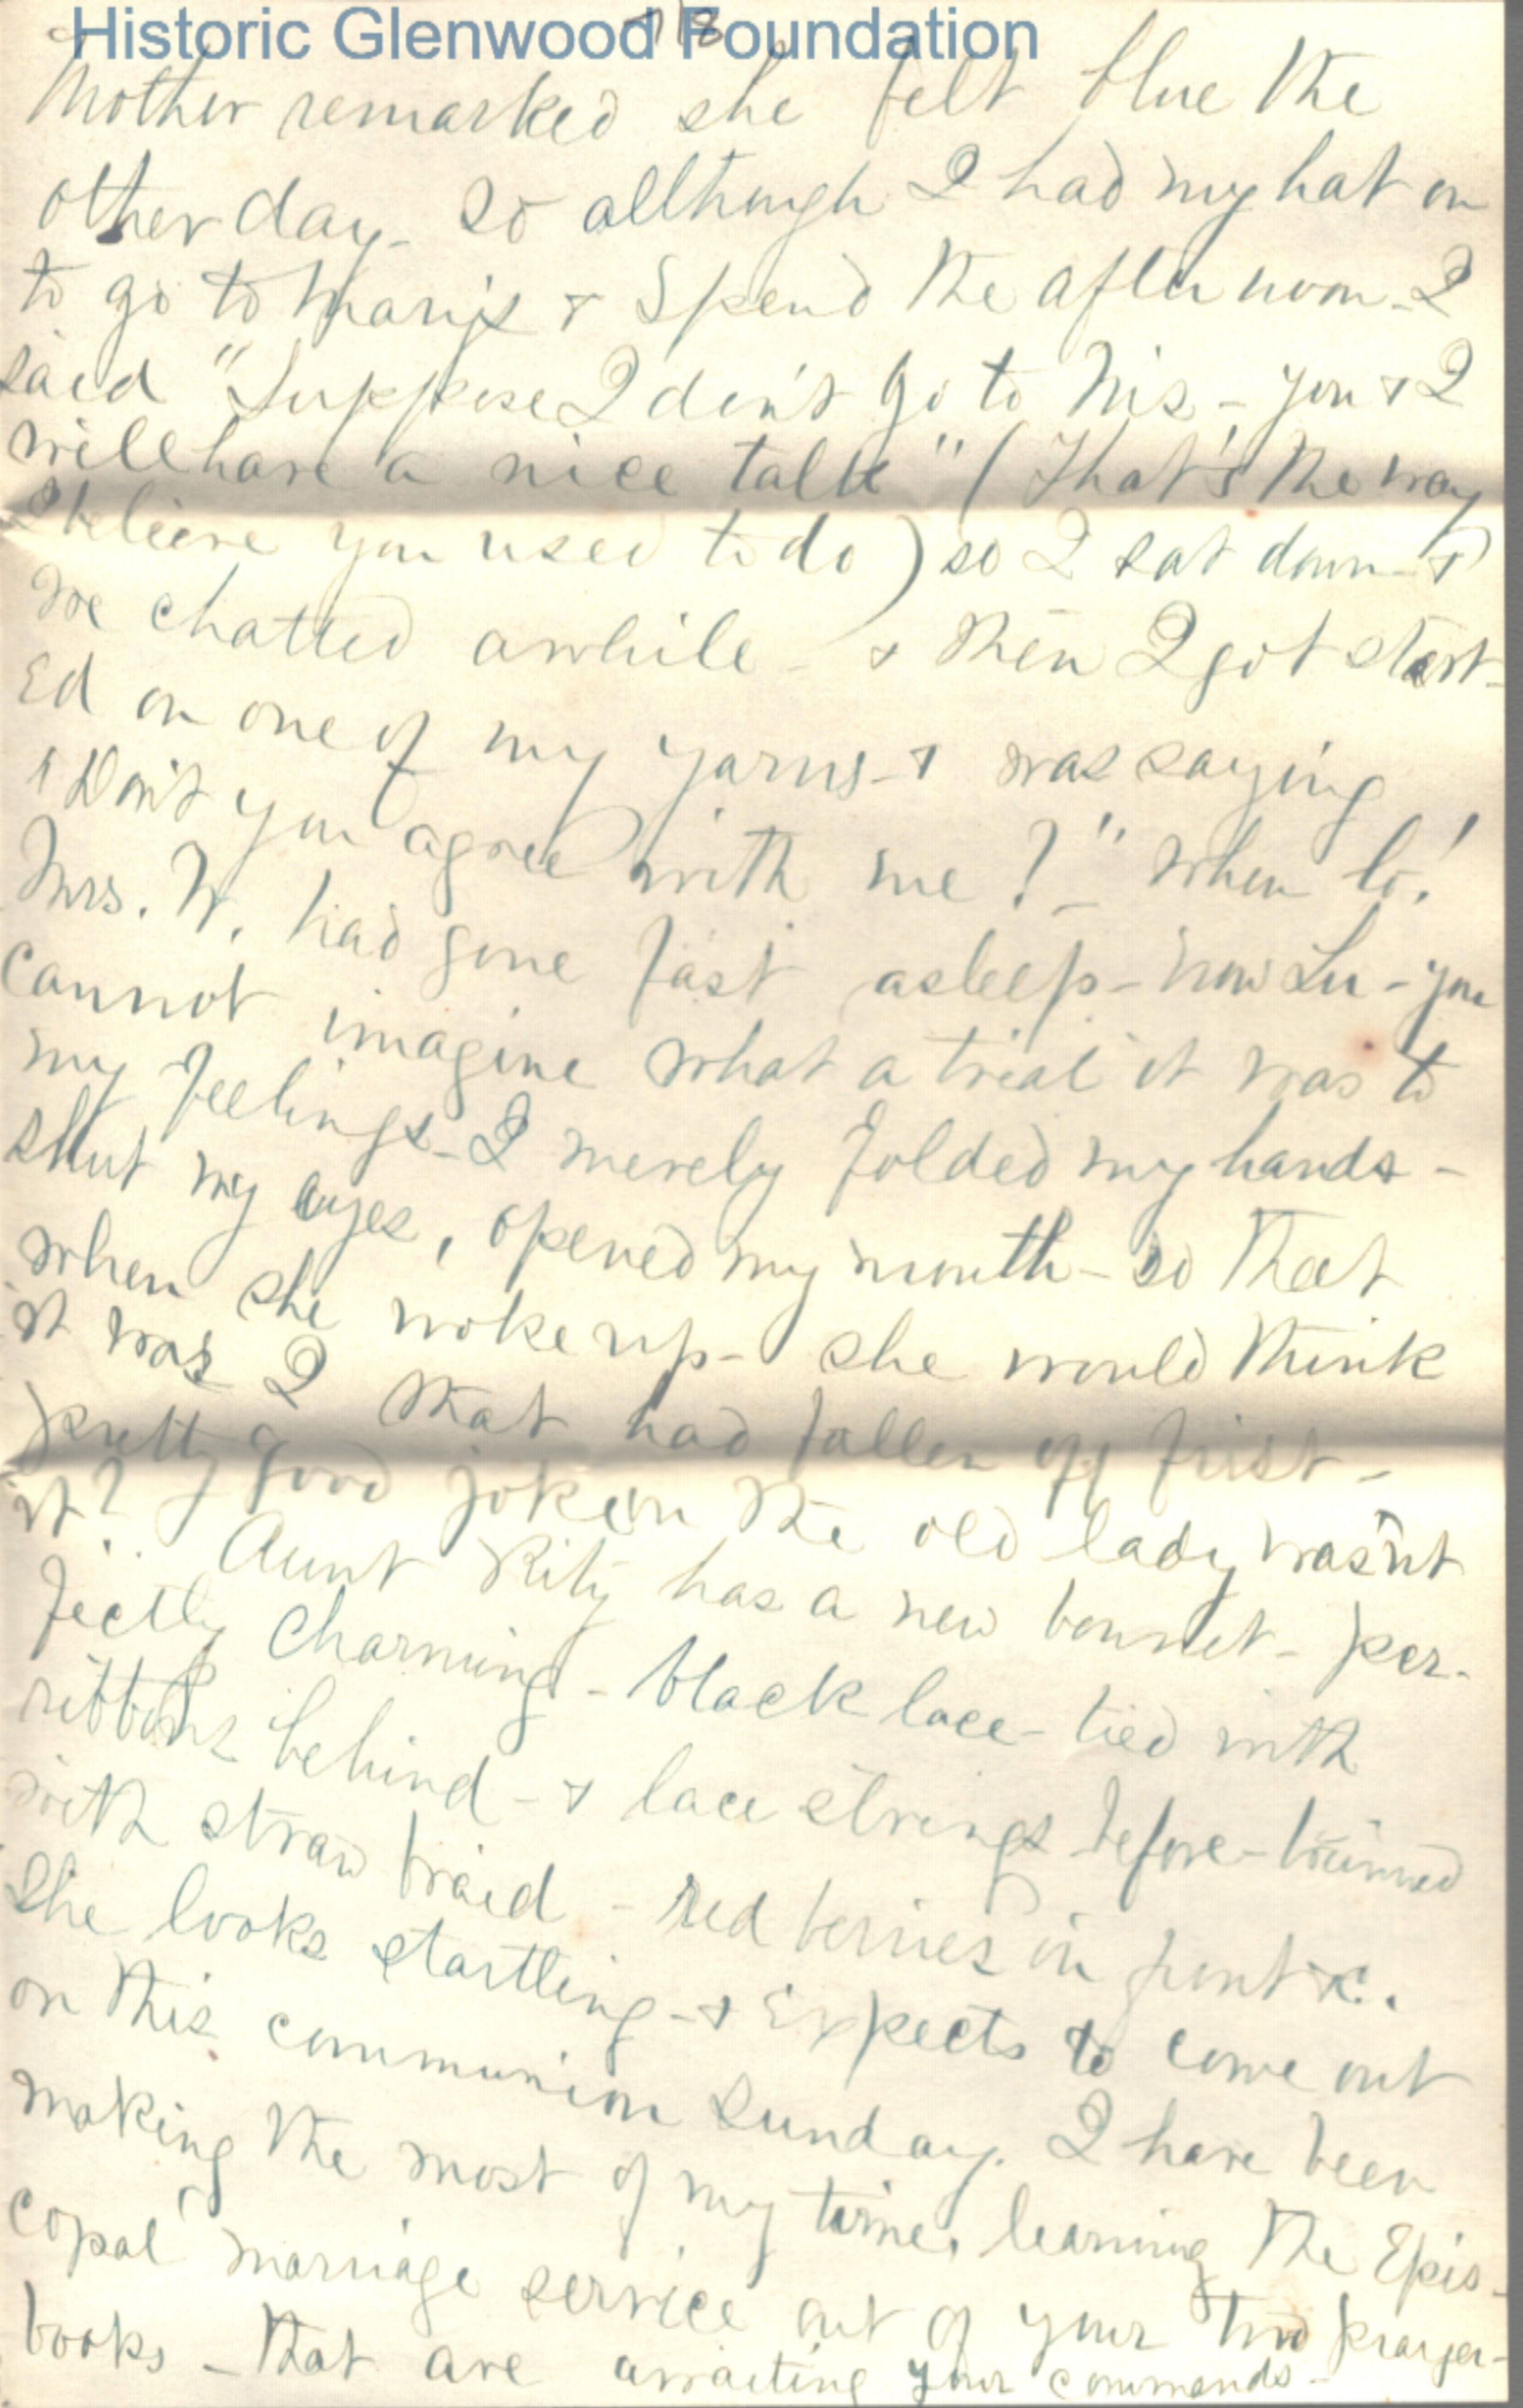 Historic Glenwood Foundation
Mother remarked she felt blue the
other day - so although I had my hat on
to go to & spend the afternoon - I
said "Suppose I don't go to M's - you & I
will have a nice talk" (That's the way
I believe you used to do) so I sat down - &
we chatted awhile - & then I got start-
Ed on one of my yarns - & was saying
"Don't you agree with me?" - when lo!
Mrs. W. had gone fast asleep - now Lu - you
cannot imagine what a trial it was to
my feelings - I merely folded my hands -
shut my eyes, opened my mouth - so that
when she woke up - she would think
it was I that had fallen off first -
pretty good joke on the old lady wasn't
it? Aunt Kity has a new bonnet - per-
fectly charming - black lace - tied with
ribbons behind - & lace strings before - trimmed
with straw braid - red berries in front &c.
She looks startling - & Expects to come out
on this communion Sunday. I have been
making the most of my time, learning the Epis-
copal marriage service out of your two prayer-
books - that are awaiting your commands -